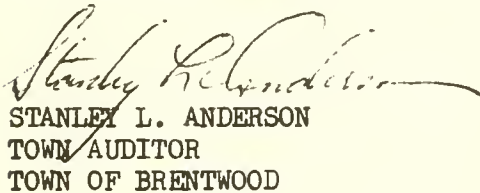 Stanley L. Anderson
STANLEY L. ANDERSON
TOWN AUDITOR
TOWN OF BRENTWOOD